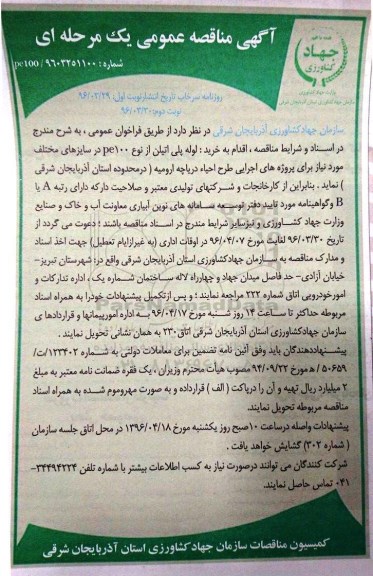 آگهی مناقصه عمومی یک مرحله ای
شماره: ۹۶۰۳۲۵۱۱۰۰ / pe100
جهاد
کشاورزی
وزارت جهاد کشاورزی
سازمان جهاد کشاورزی استان آذربایجان شرقی
روزنامه سرخاب تاریخ انتشار نوبت اول: ۹۶/۰۳/۲۹
نوبت دوم: ۹۶/۰۳/۳۰
سازمان جهاد کشاورزی آذربایجان شرقی در نظر دارد از طریق فراخوان عمومی ، به شرح مندرج
در اسناد و شرایط مناقصه ، اقدام به خرید : لوله پلی اتیلن از نوع pe۱۰۰ در سایزهای مختلف
مورد نیاز برای پروژه های اجرایی طرح احیاء دریاچه ارومیه ( درمحدوده استان آذربایجان شرقی
) نماید . بنابراین از کارخانجات و شرکتهای تولیدی معتبر و صلاحیت دارکه دارای رتبه A یا
B وگواهینامه مورد تایید دفتر توسعه سامانه های نوین آبیاری معاونت آب و خاک و صنایع
وزارت جهاد کشاورزی و نیزسایر شرایط مندرج در اسناد مناقصه باشند ؛ دعوت می گردد از
تاریخ ۹۶/۰۳/۳۰ لغایت مورخ ۹۶/۰۴/۰۷ در اوقات اداری (به غیرازایام تعطیل) جهت اخذ اسناد
و مدارک مناقصه به سازمان جهادکشاورزی استان آذربایجان شرقی واقع در: شهرستان تبریز-
خیابان آزادی- حد فاصل میدان جهاد و چهارراه لاله ساختمان شماره یک ، اداره تدارکات و
امورخودرویی اتاق شماره ۲۲۲ مراجعه نمایند ؛ و پس ازتکمیل پیشنهادات خودرا به همراه اسناد
مربوطه حداکثر تا ساعت ۱۴ روز شنبه مورخ ۹۶/۰۴/۱۷ به اداره امورپیمانها و قراردادها ی
سازمان جهادکشاورزی استان آذربایجان شرقی اتاق ۲۳۰ به همان نشانی تحویل نمایند .
پیشنهاددهندگان باید وفق آئین نامه تضمین برای معاملات دولتی به شماره ۱۲۳۴۰۲/ت/
۵۰۶۵۹ /ه مورخ ۹۴/۰۹/۲۲ مصوب هیأت محترم وزیران ، یک فقره ضمانت نامه معتبر به مبلغ
۲ میلیارد ریال تهیه و آن را درپاکت ( الف ) قرارداده و به صورت مهروموم شده به همراه اسناد
مناقصه مربوطه تحویل نمایند.
پیشنهادات واصله درساعت ۱۰صبح روز یکشنبه مورخ ۱۳۹۶/۰۴/۱۸ در محل اتاق جلسه سازمان
( شماره ۳۰۲) گشایش خواهد یافت .
شرکت کنندگان می توانند درصورت نیاز به کسب اطلاعات بیشتر با شماره تلفن ۳۴۴۹۴۲۲۴-
۰۴۱ تماس حاصل نمایند.
کمیسیون مناقصات سازمان جهاد کشاورزی استان آذربایجان شرقی